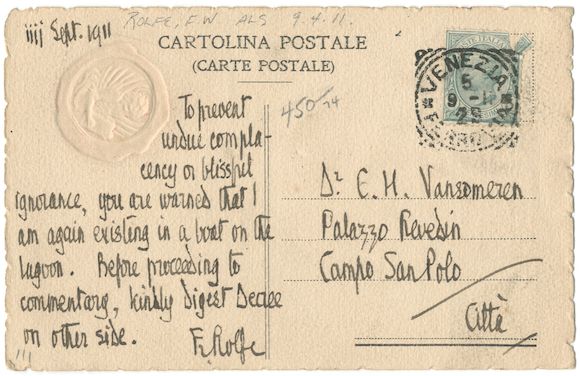 ROLFE, F.W ALS 9.4.11.
iiij Sept. 1911
CARTOLINA POSTALE
(CARTE POSTALE)
VENEZIA
To prevent
undue compla-
cency or blissful
ignorance, you are warned that I
am again existing in a boat on the
lagoon. Before proceeding to
commentary, kindly digest Decree
on other side.
Fr. Rolfe
Dr. E. H. Vansomeren
Palazzo Revedin
Campo San Polo
Città